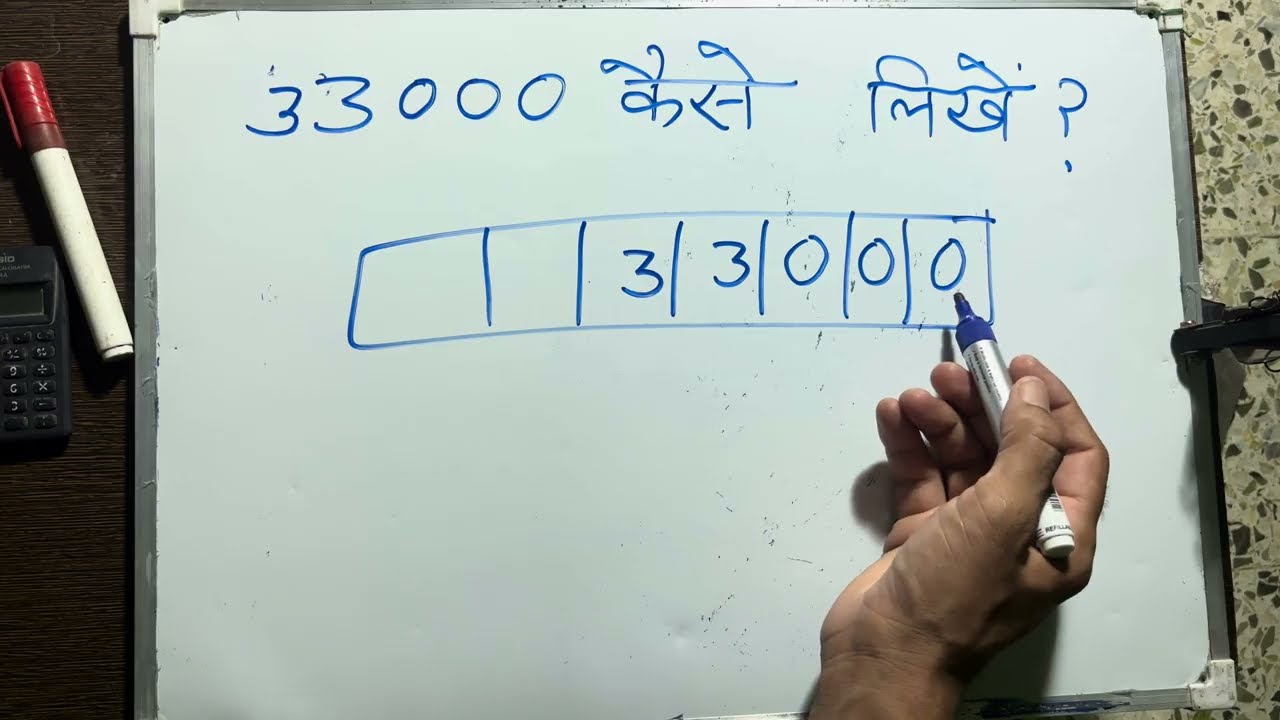 33000 कैसे लिखें ?
3 3 0 0 0
REFILLA